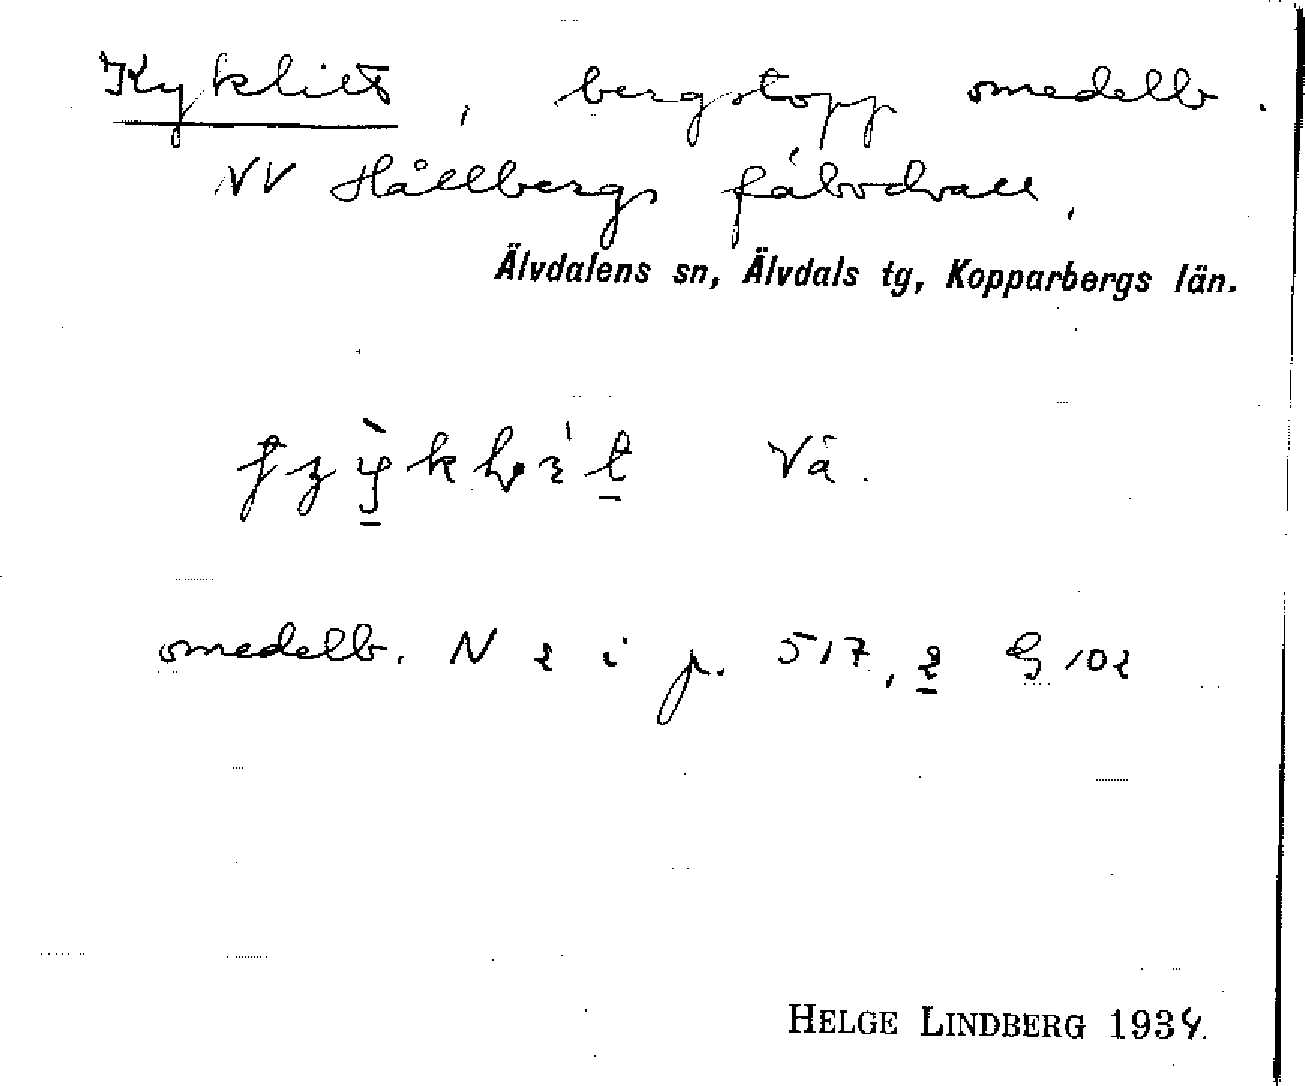 Kyklitt, bergstopp omedelb.
NV Hållbergs fäbodvall,
Älvdalens sn, Älvdals tg, Kopparbergs län.
Vä.
omedelb. N 2 i p. 517, 2 G 102
HELGE LINDBERG 1934.